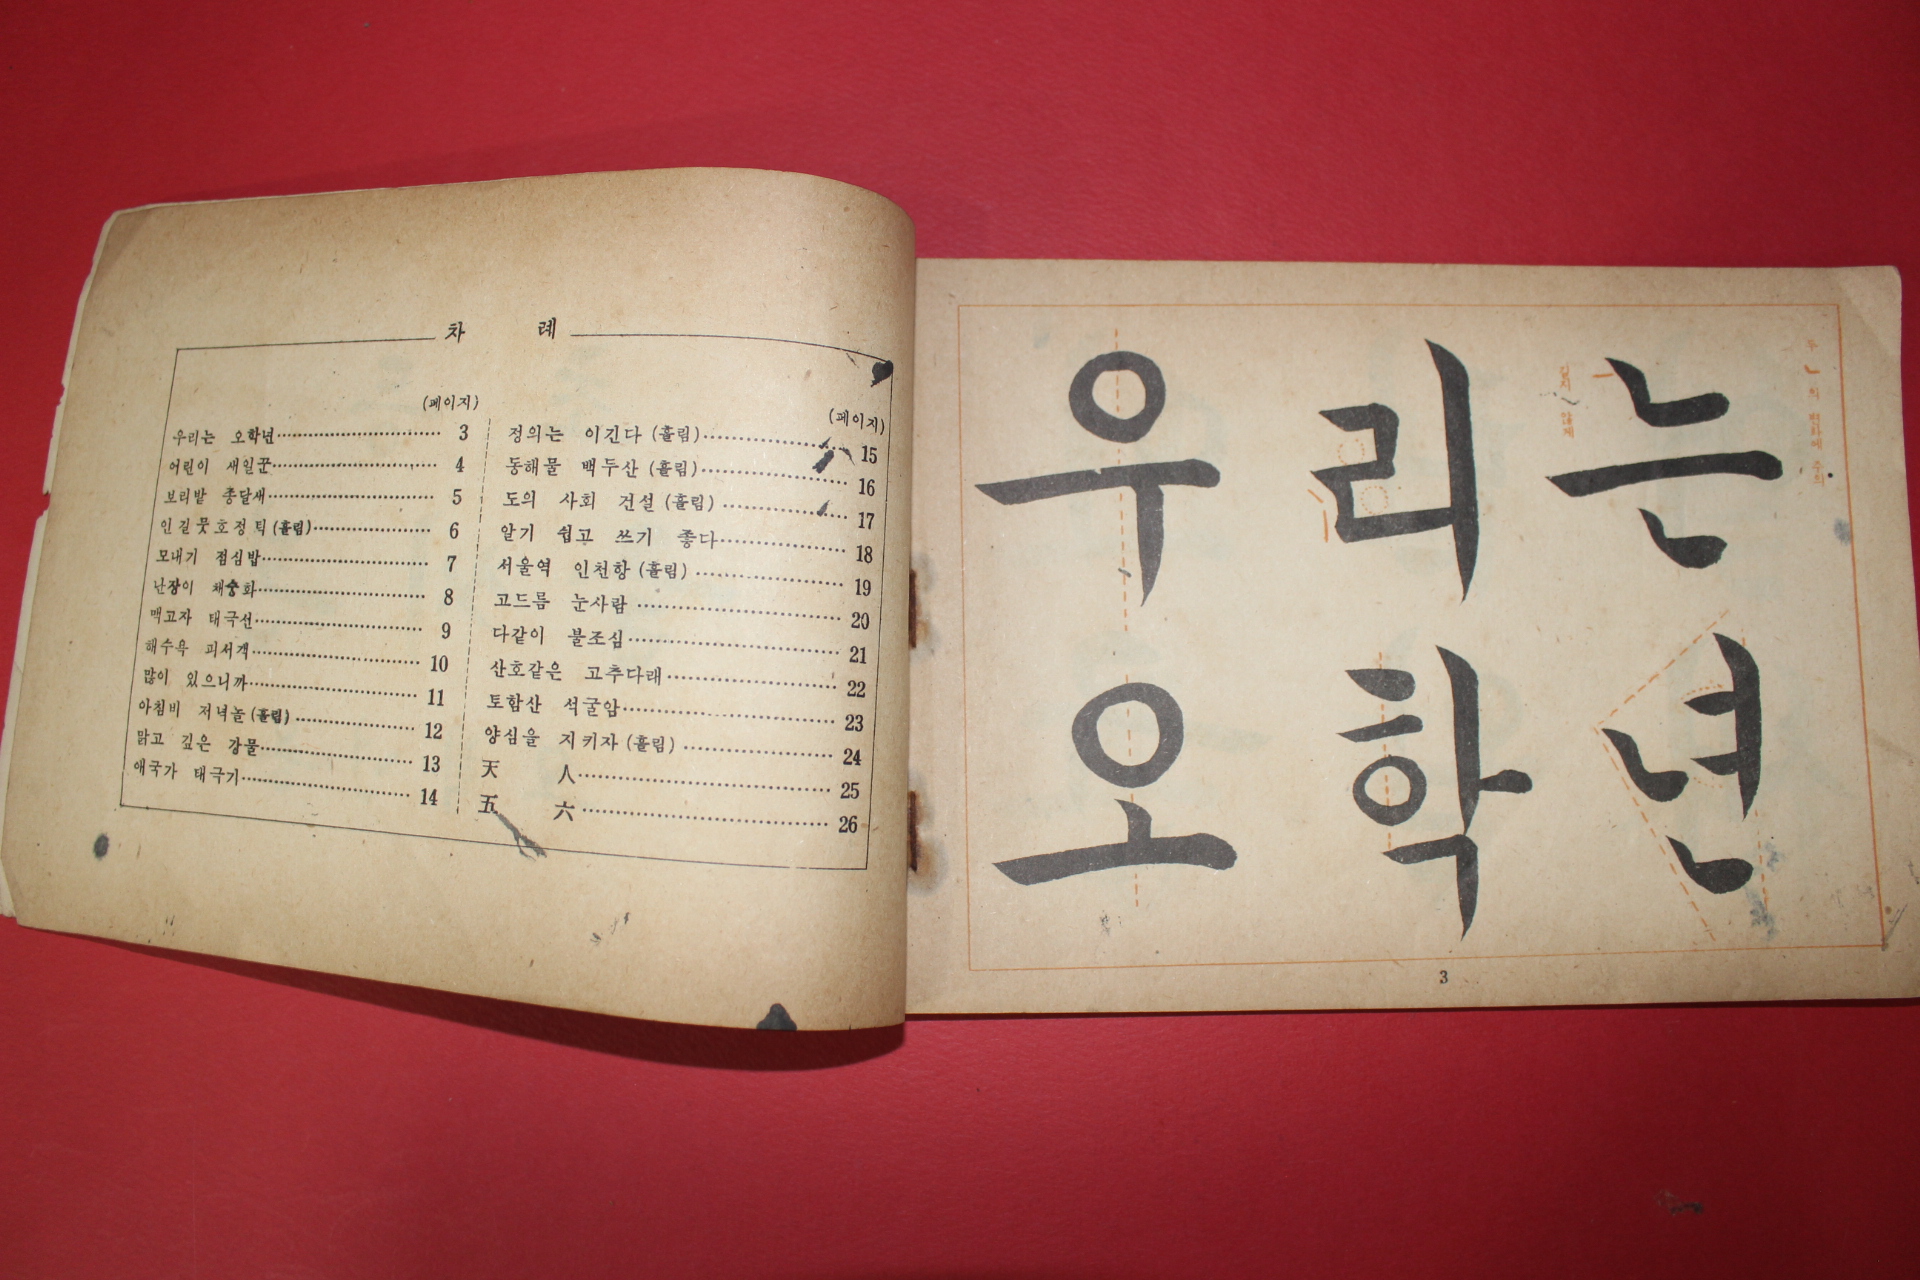 차 례
(페이지)
우리는 오학년 3
어린이 새일꾼 4
보리밭 종달새 5
인길뭇호정틱(흘림) 6
모내기 점심밥 7
난장이 채숭화 8
맥고자 태극선 9
해수욕 피서객 10
많이 있으니까 11
아침비 저녁놀(흘림) 12
맑고 깊은 강물 13
애국가 태극기 14
(페이지)
정의는 이긴다(흘림) 15
동해물 백두산(흘림) 16
도의 사회 건설(흘림) 17
알기 쉽고 쓰기 좋다 18
서울역 인천항(흘림) 19
고드름 눈사람 20
다같이 불조심 21
산호같은 고추다래 22
토함산 석굴암 23
양심을 지키자(흘림) 24
天 人 25
五 六 26
우리는
오학년
두 ㄴ의 변화에 주의
길지 않게
3